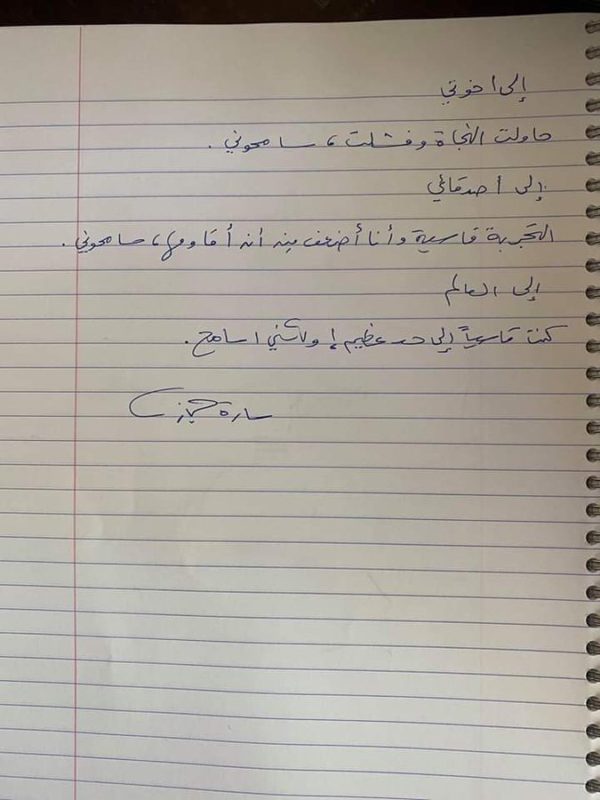 إلى أخوتي
حاولت النجاة وفشلت، سامحوني.
إلى أصدقائي
التجربة قاسية وأنا أضعف من أن أقاومها، سامحوني.
إلى العالم
كنت قاسياً إلى حد عظيم، ولكني أسامح.
سارة حجازي